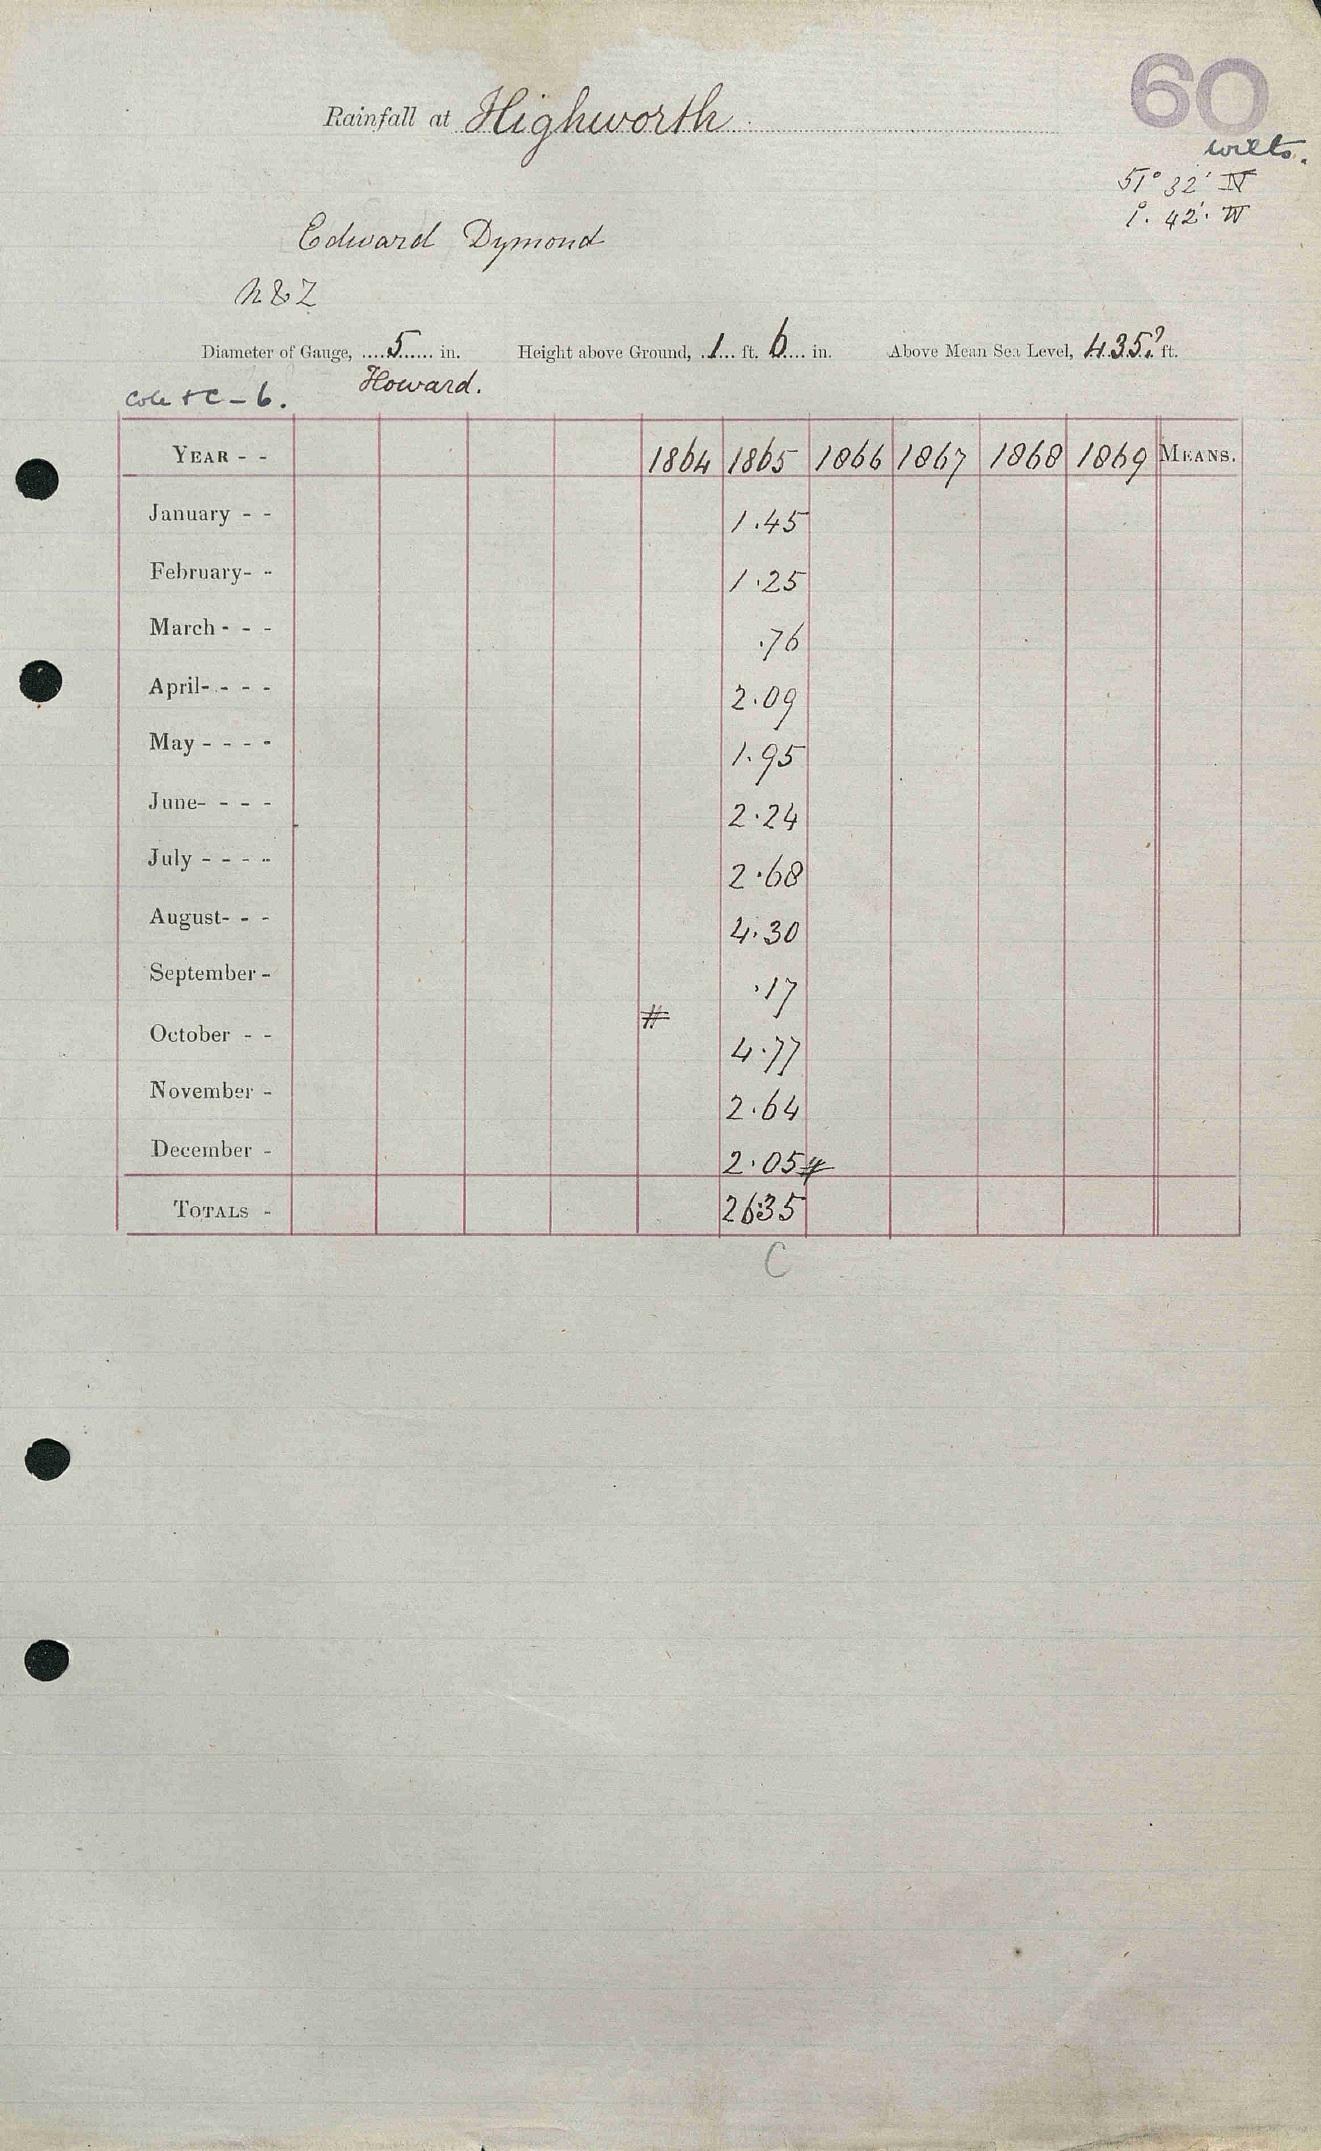 60
Rainfall at Highworth
Wilts.
51° 32' N
1°. 42'. W
Edward Dymond
Diameter of Gauge, ....5...... in. Height above Ground, ..1... ft. 6.... in. Above Mean Sea Level, 435? ft.
Howard.
- 6.
YEAR - - 1864 1865 1866 1867 1868 1869 MEANS.
January - - 1.45
February- - 1.25
March - - - .76
April- - - - 2.09
May - - - - 1.95
June- - - - 2.24
July - - - - 2.68
August- - - 4.30
September - .17
#
October - - 4.77
November - 2.64
December - 2.05#
TOTALS - 26.35
C